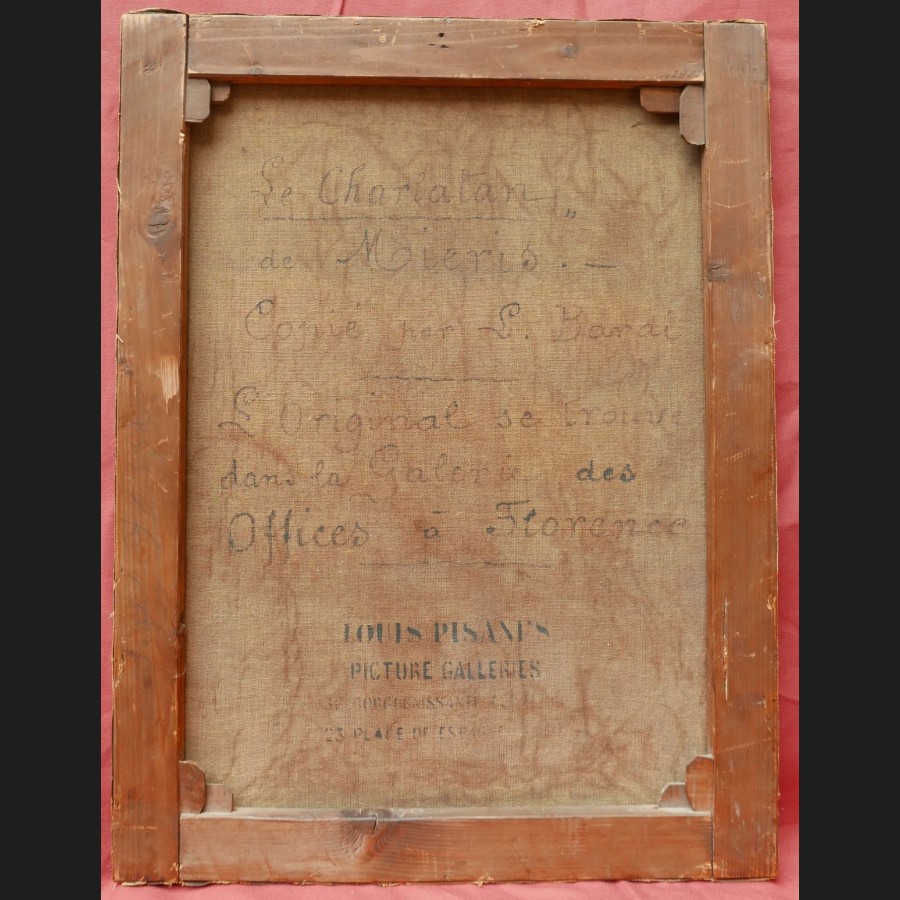 Le Charlatan „
de Mieris. —
Copié par L.
L'Original se trouve
dans la Galerie des
Offices à Florence
LOUIS PISANI'S
PICTURE GALLERIES
BORGOGNISSANTI
23 PLACE DE ESPAGNE